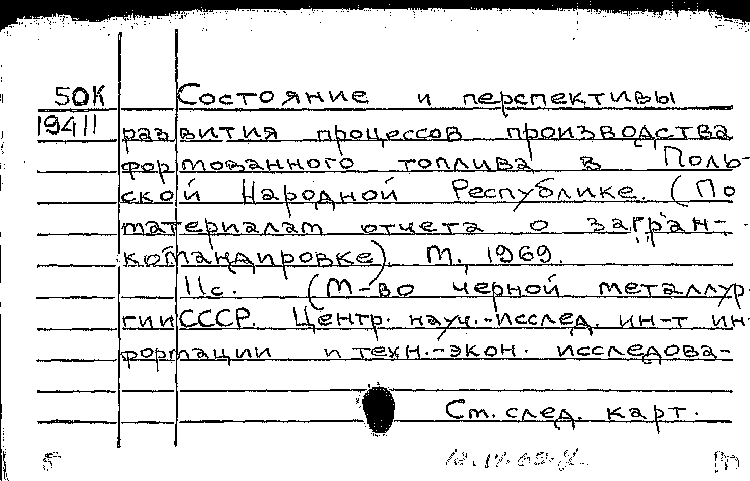 50К Состояние и перспективы
19411 развития процессов производства
формованного топлива в Поль-
ской Народной Республике. (По
материалам отчета о загран-
командировке). М., 1969.
11с. (М-во черной металлур-
гии СССР. Центр. науч.-исслед. ин-т ин-
формации и техн.-экон. исследова-
См. след. карт.
5